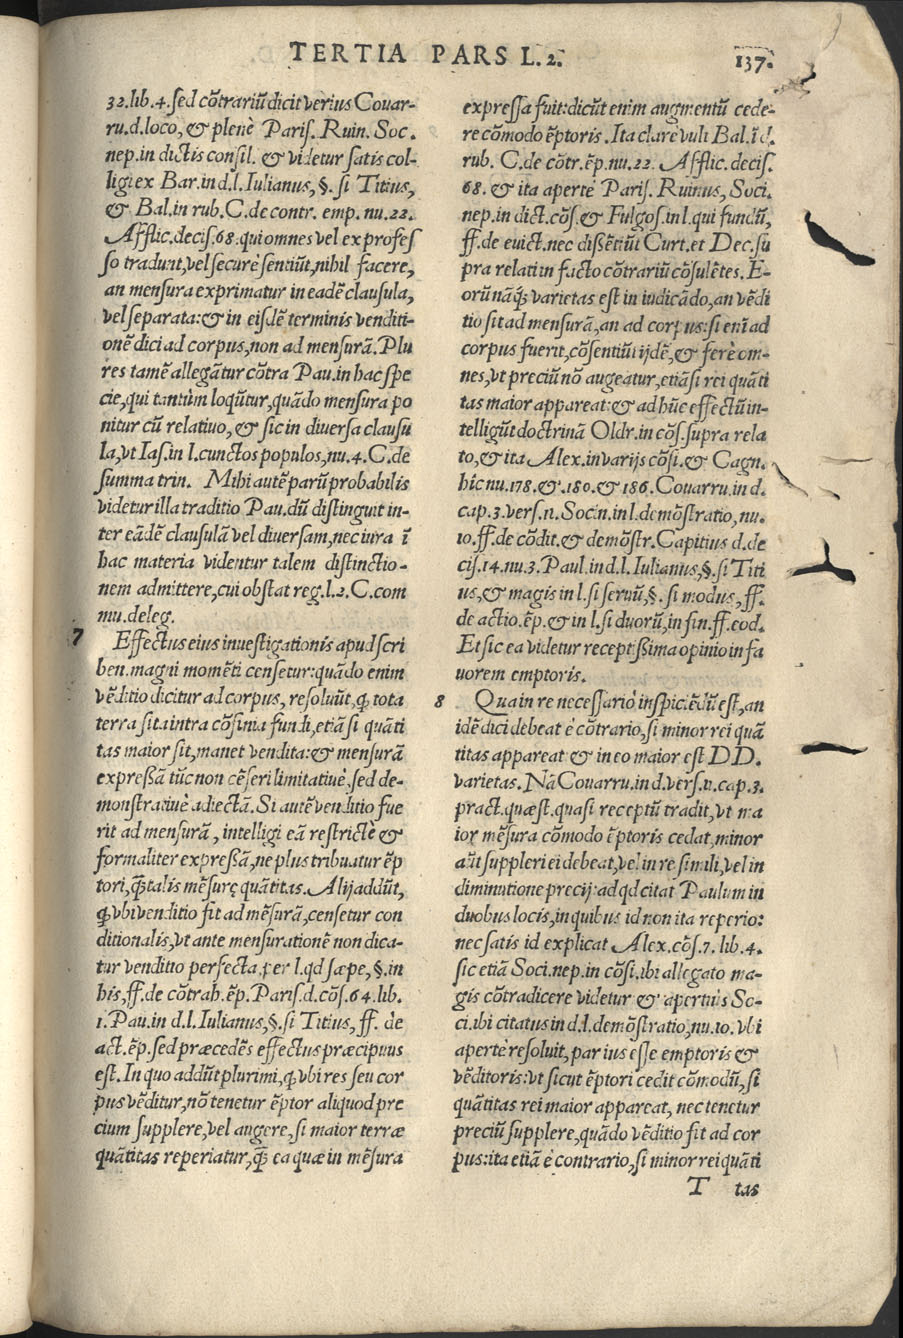 TERTIA PARS L. 2.
137.
32.lib.4.ſed cõtrariũ dicit verius Couar-
ru.d.loco, & plenè Pariſ. Ruin. Soc.
nep.in dictis conſil. & videtur ſatis col-
ligi ex Bar.in d.l. Iulianus, §. ſi Titius,
& Bal.in rub.C.de contr. emp. nu.22.
Afflic.deciſ.68.qui omnes vel ex profeſ
ſo tradunt, vel ſecurè ſentiũt, nihil facere,
an menſura exprimatur in eadẽ clauſula,
vel ſeparata: & in eiſdẽ terminis venditi-
onẽ dici ad corpus, non ad menſurã. Plu
res tamẽ allegãtur cõtra Pau. in hac ſpe
cie, qui tantùm loqũtur, quãdo menſura po
nitur cũ relatiuo, & ſic in diuerſa clauſu
la, vt Iaſ. in l. cunctos populos, nu.4. C.de
ſumma trin. Mihi autẽ parũ probabilis
videtur illa traditio Pau. dũ diſtinguit in-
ter eãdẽ clauſulã vel diuerſam, nec iura ĩ
hac materia videntur talem diſtinctio-
nem admittere, cui obſtat reg.l.2.C.com
mu.deleg.
7 Effectus eius inueſtigationis apud ſcri
ben. magni momẽti cenſetur: quãdo enim
vẽditio dicitur ad corpus, reſoluũt, ꝙ tota
terra ſita intra cõfinia fundi, etiã ſi quãti
tas maior ſit, manet vendita: & menſurã
expreſſã tũc non cẽſeri limitatiuè, ſed de-
monſtratiuè adiectã. Si autẽ venditio fue
rit ad menſurã, intelligi eã reſtrictè &
formaliter expreſſã, ne plus tribuatur ẽp
tori, ꝗ̃ talis mẽſuræ quãtitas. Alij addũt,
ꝙ vbi venditio fit ad mẽſurã, cenſetur con
ditionalis, vt ante menſurationẽ non dica-
tur venditio perfecta, per l. qd ſæpe, §. in
his, ff. de cõtrah. ẽp. Pariſ. d. cõſ. 64. lib.
1. Pau. in d.l. Iulianus, §. ſi Titius, ff. de
act. ẽp. ſed præcedẽs effectus præcipuus
eſt. In quo addũt plurimi, ꝙ vbi res ſeu cor
pus vẽditur, nõ tenetur ẽptor aliquod pre
cium ſupplere, vel augere, ſi maior terræ
quãtitas reperiatur, ꝗ̃ ea quæ in mẽſura
expreſſa fuit: dicũt enim augmentũ cede-
re cõmodo ẽptoris. Ita clarè vult Bal. ĩ d.
rub. C. de cõtr. ẽp. nu. 22. Afflic. deciſ.
68. & ita apertè Pariſ. Ruinus, Soci.
nep. in dict. cõſ. & Fulgoſ. in l. qui fundũ,
ff. de euict. nec diſſẽtiũt Curt. et Dec. ſu
pra relati in facto cõtrariũ cõſulẽtes. E-
orũ nãꝗ; varietas eſt in iudicãdo, an vẽdi
tio ſit ad menſurã, an ad corpus: ſi enĩ ad
corpus fuerit, cõſentiũt ijdẽ, & ferè om-
nes, vt preciũ nõ augeatur, etiã ſi rei quãti
tas maior appareat: & ad hũc effectũ in-
telligũt doctrinã Oldr. in cõſ. ſupra rela
to, & ita Alex. in varijs cõſi. & Cagn.
hic nu. 178. & .180. & 186. Couarru. in d.
cap. 3. verſ. 11. Socin. in l. demõſtratio, nu.
10. ff. de cõdit. & demõſtr. Capitius d. de
ciſ. 14. nu. 3. Paul. in d. l. Iulianus, §. ſi Titi
us, & magis in l. ſi ſeruũ, §. ſi modus, ff.
de actio. ẽp. & in l. ſi duorũ, in fin. ff. eod.
Et ſic ea videtur receptiſsima opinio in fa
uorem emptoris.
8 Qua in re neceſſariò inſpiciẽdũ eſt, an
idẽ dici debeat è cõtrario, ſi minor rei quã
titas appareat: & in eo maior eſt DD.
varietas. Nã Couarru. in d. verſ. 11. cap. 3.
pract. quæſt. quaſi receptũ tradit, vt ma
ior mẽſura cõmodo ẽptoris cedat, minor
aũt ſuppleri ei debeat, vel in re ſimili, vel in
diminutione precij: ad qd citat Paulum in
duobus locis, in quibus id non ita reperio:
nec ſatis id explicat Alex. cõſ. 7. lib. 4.
ſic etiã Soci. nep. in cõſi. ibi allegato ma-
gis cõtradicere videtur & apertiùs So-
ci. ibi citatus in d. l. demõſtratio, nu. 10. vbi
apertè reſoluit, par ius eſſe emptoris &
vẽditoris: vt ſicut ẽptori cedit cõmodũ, ſi
quãtitas rei maior appareat, nec tenetur
preciũ ſupplere, quãdo vẽditio fit ad cor
pus: ita etiã è contrario, ſi minor rei quãti
T tas